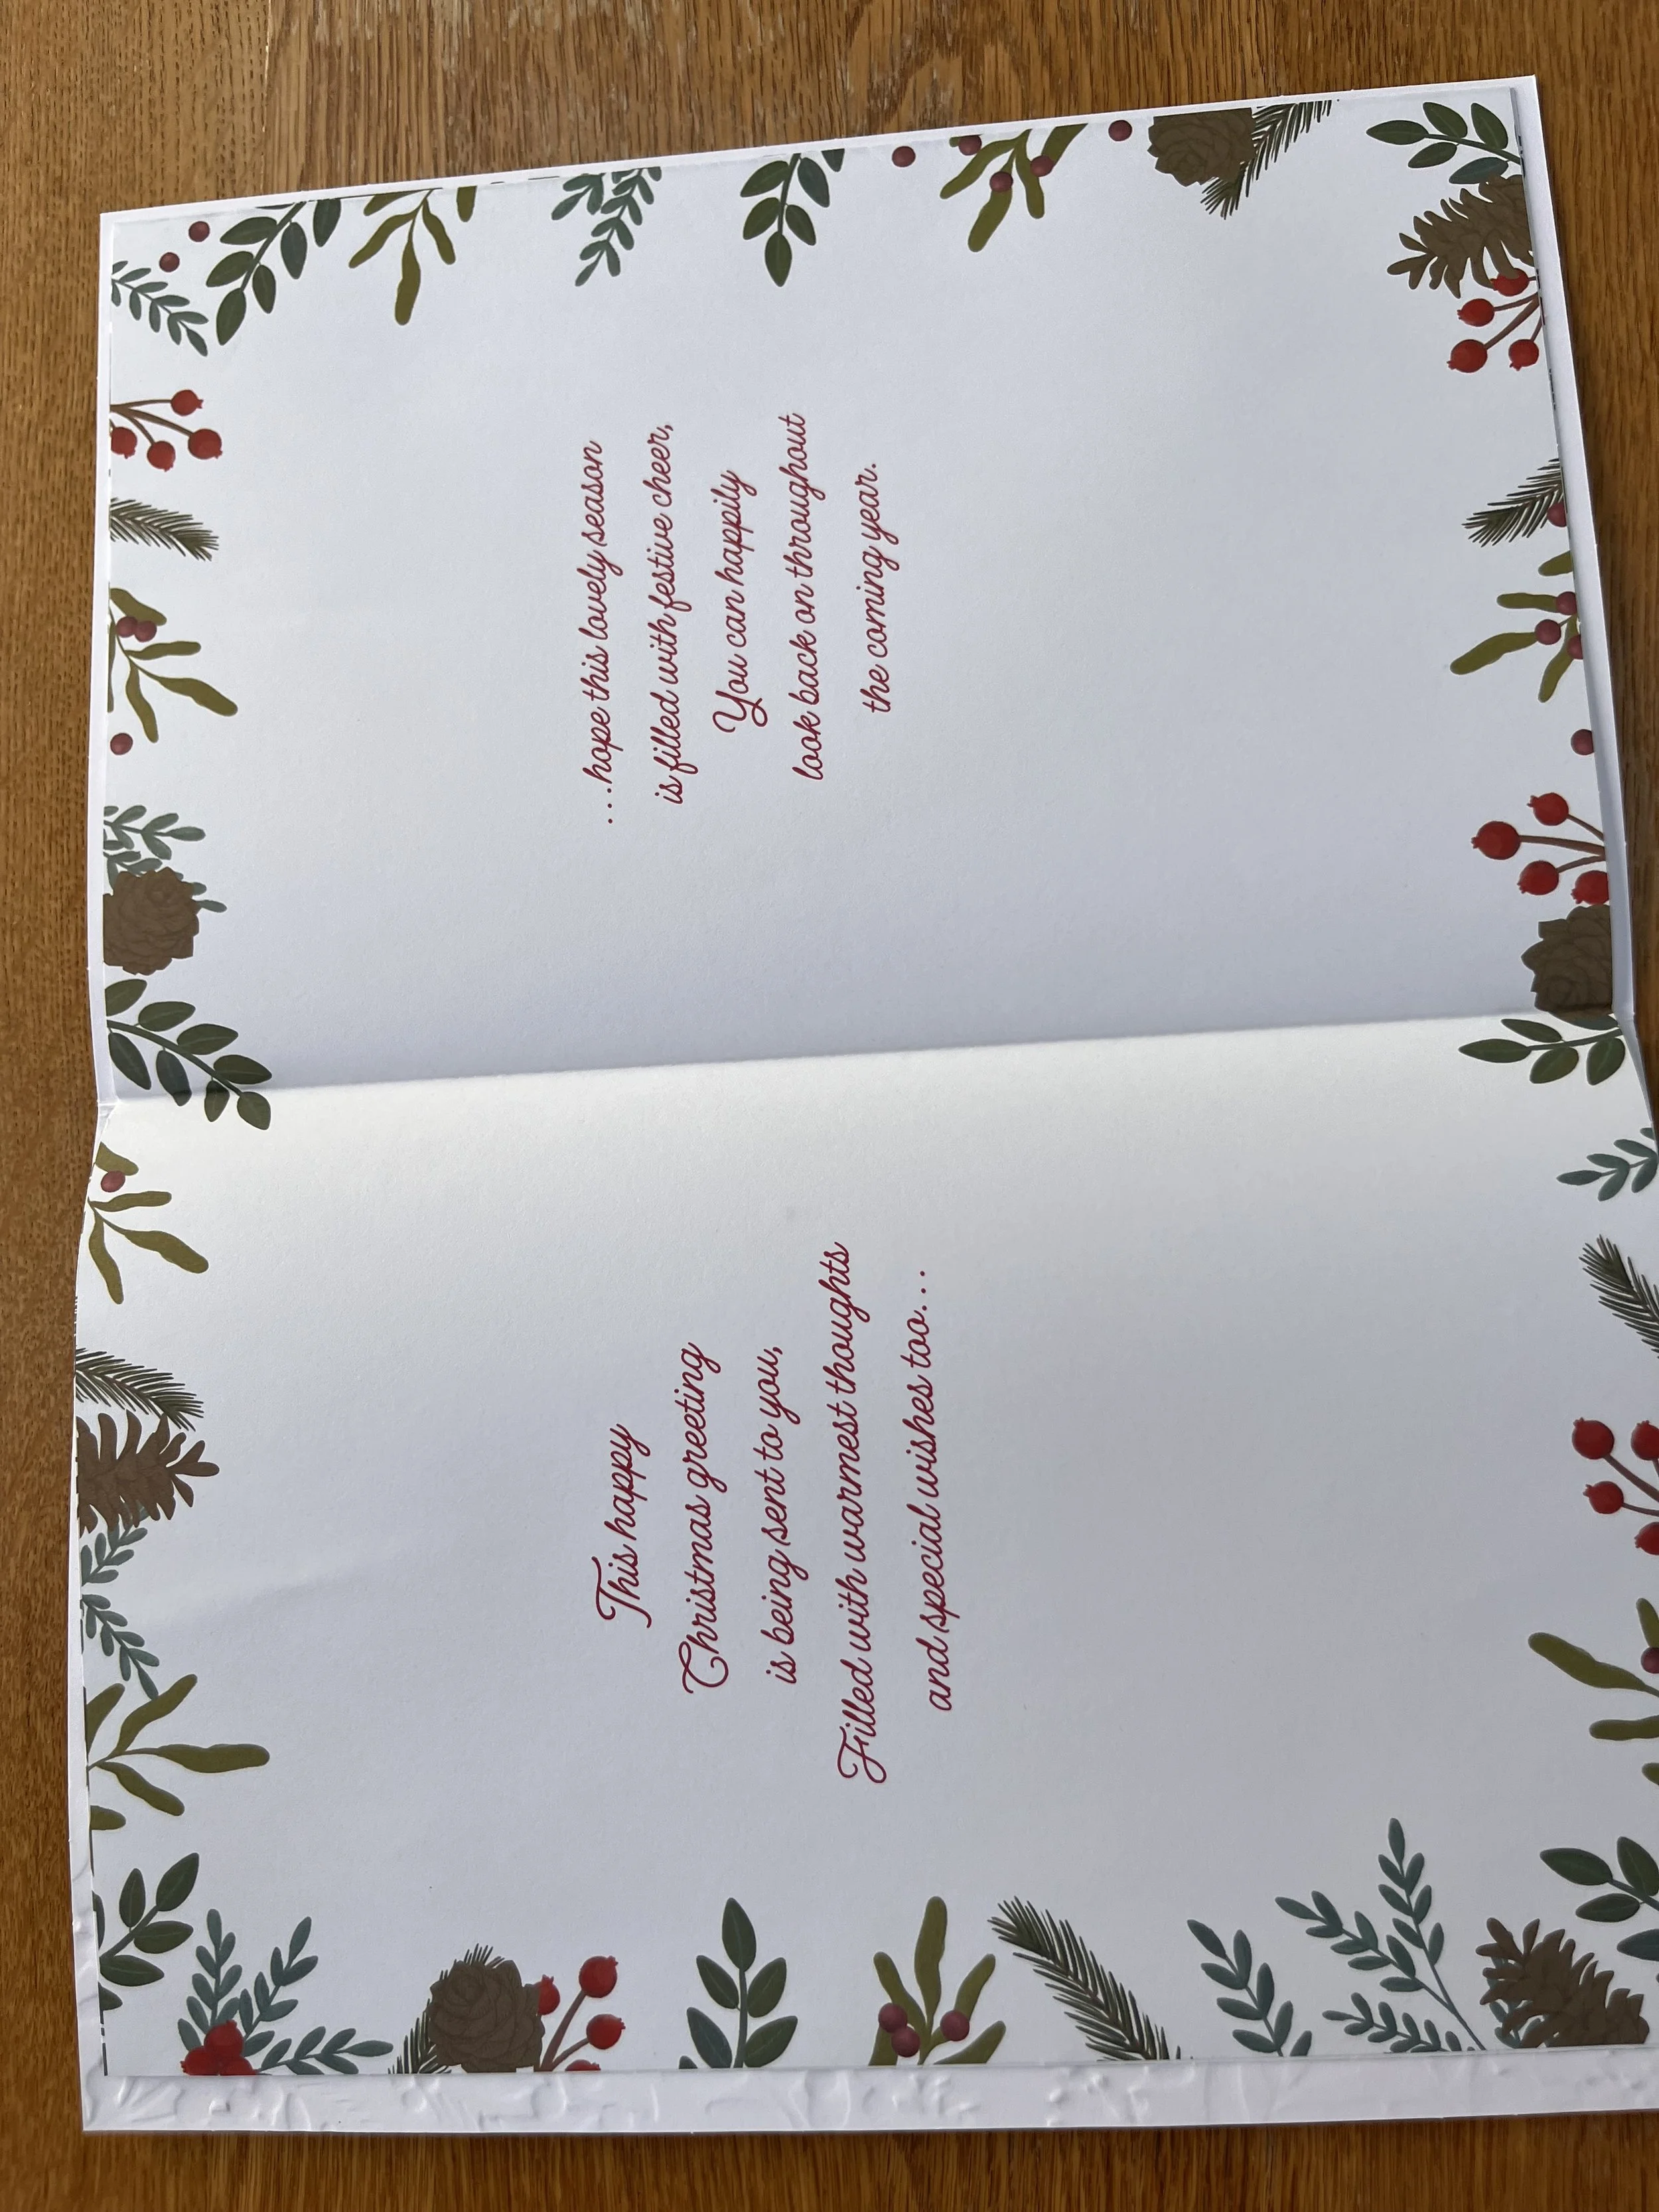 This happy
Christmas greeting
is being sent to you,
Filled with warmest thoughts
and special wishes too...
...hope this lovely season
is filled with festive cheer,
You can happily
look back on throughout
the coming year.